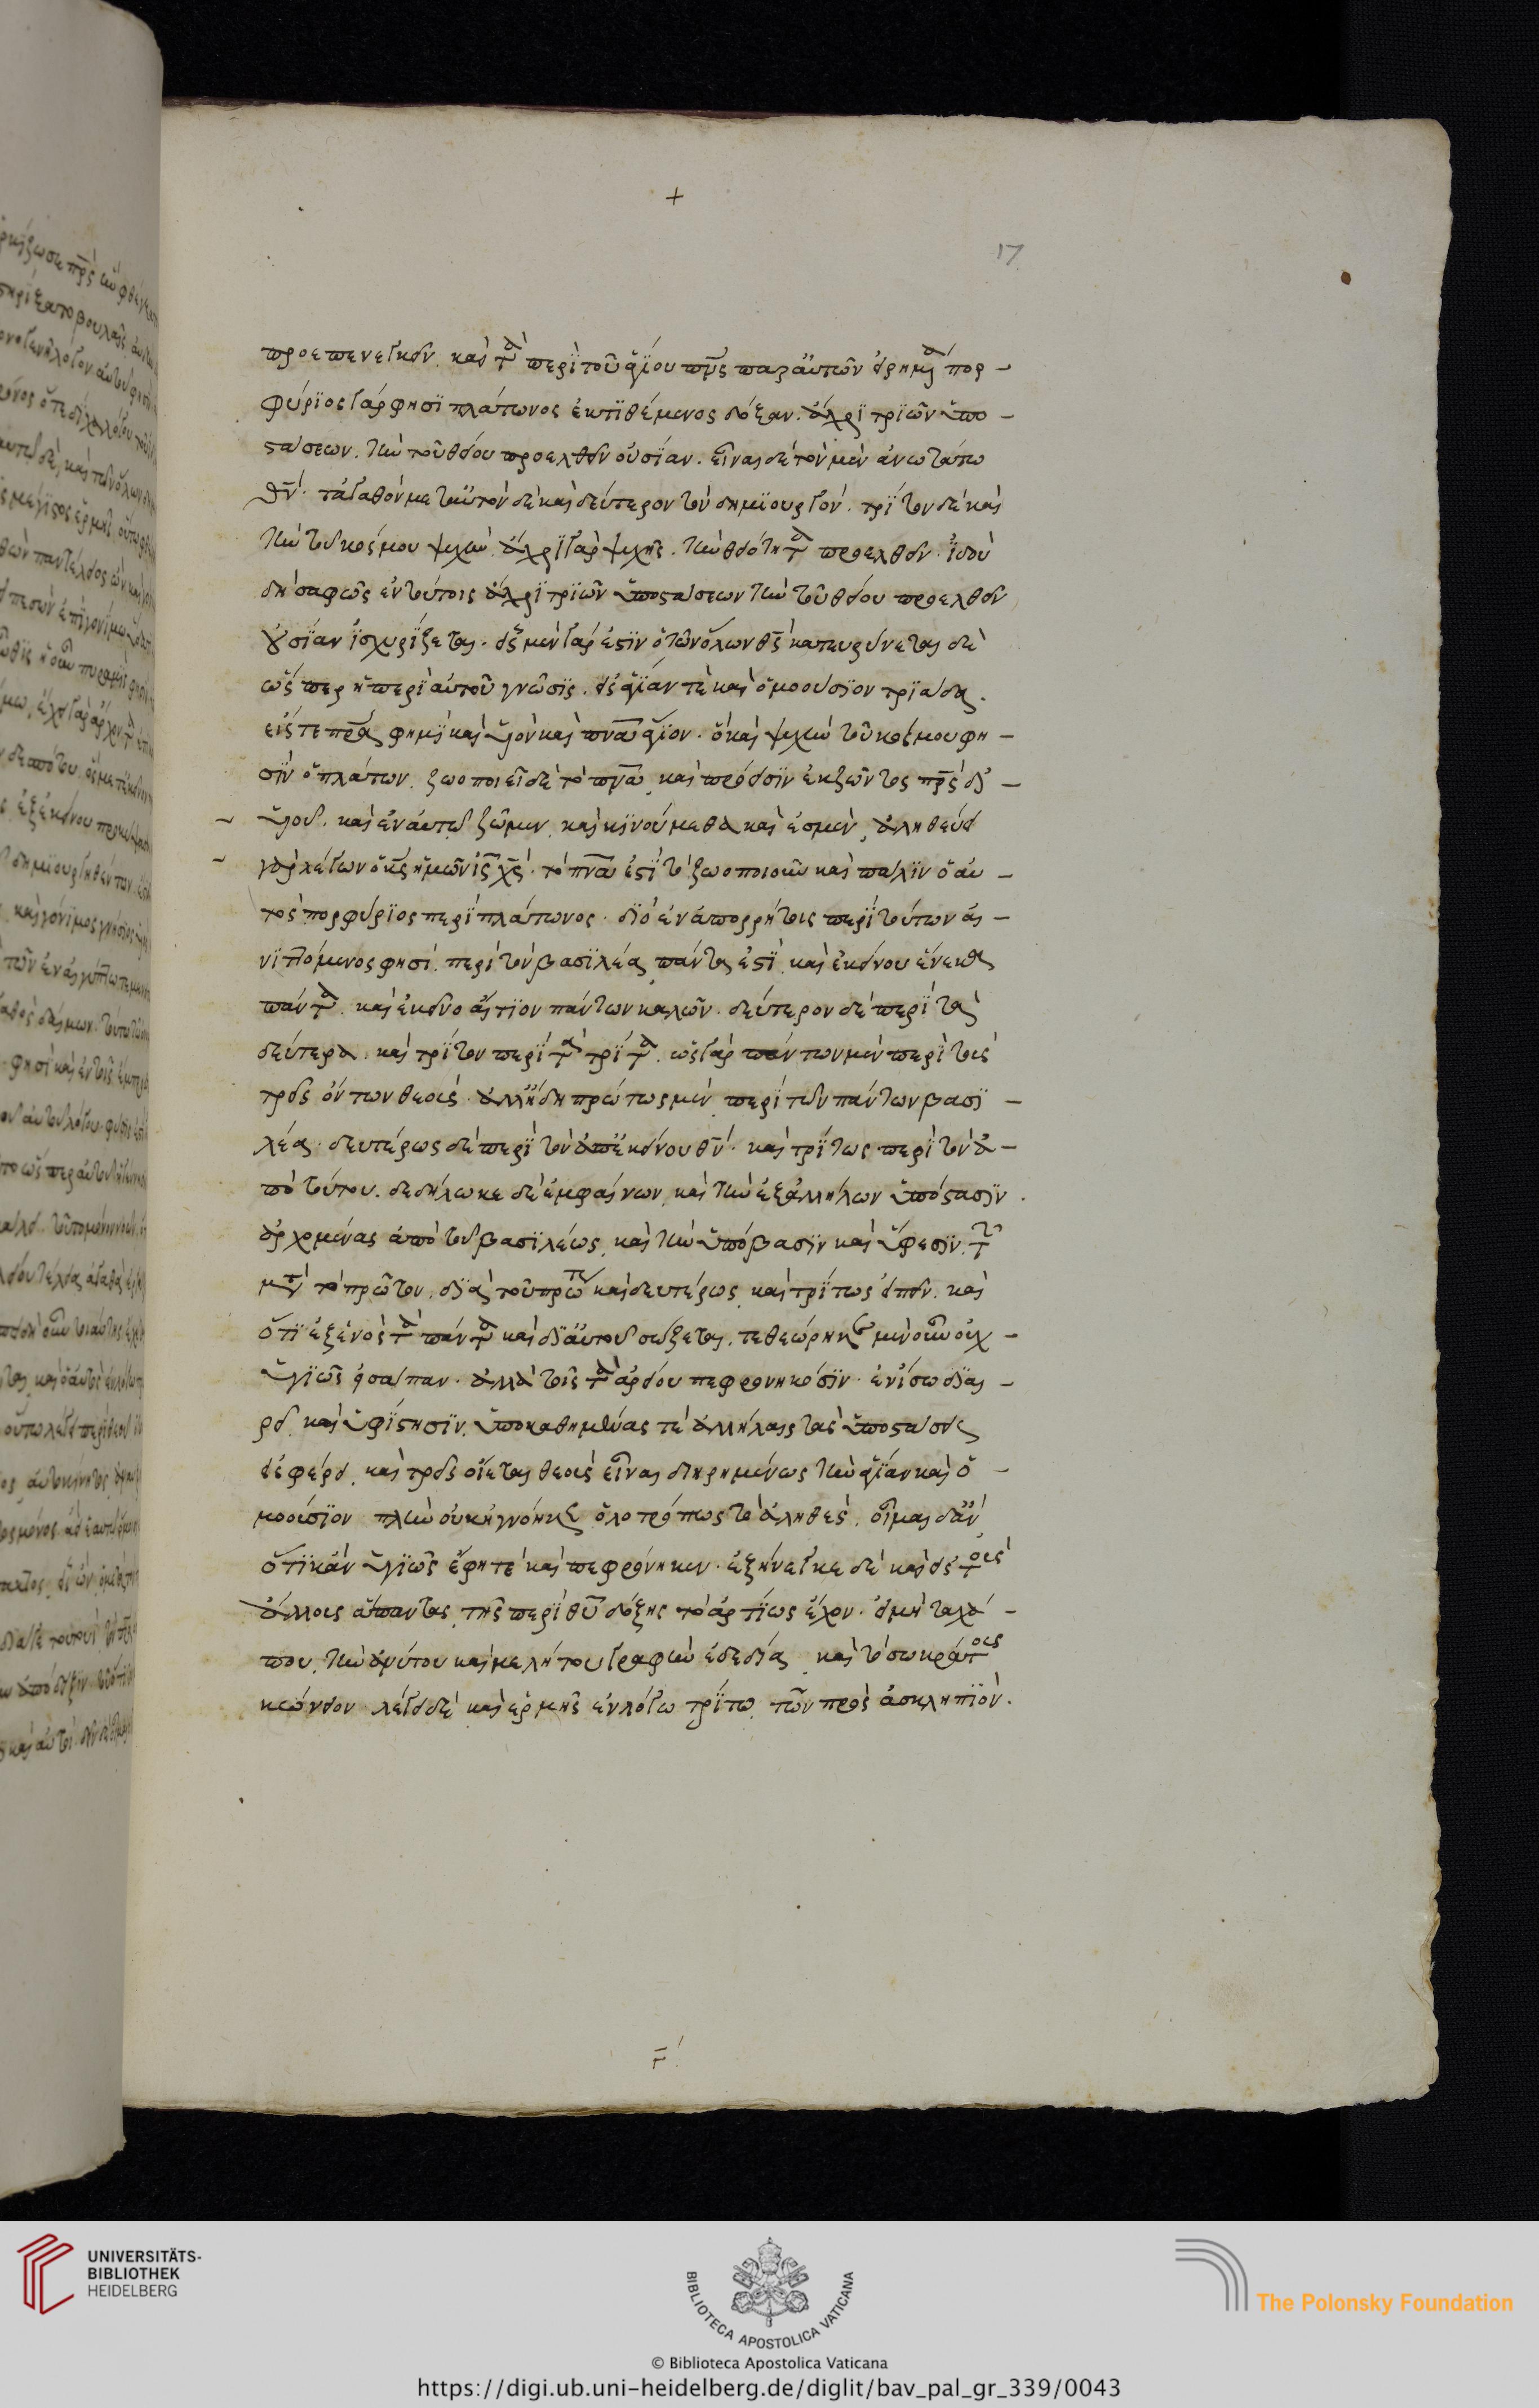 +
17
προεπενεγκεῖν. καὶ τὰ περὶ τοῦ ἁγίου πνς παρ' αὐτῶν εἰρημένα πορ-
φύριος γάρ φησι πλάτωνος ἐκτιθέμενος δόξαν. ἄχρι τριῶν ὑπο-
στάσεων. τὴν τοῦ θείου προελθεῖν οὐσίαν. εἶναι δὲ τὸν μὲν ἀνωτάτω
θν. τἀγαθόν μετ' αὐτὸν δὲ καὶ δεύτερον τὸν δημιουργόν. τρίτον δὲ καὶ
τὴν τοῦ κόσμου ψυχήν. ἄχρι γὰρ ψυχῆς. τὴν θεότητα προελθεῖν. ἰδοὺ
δὴ σαφῶς ἐν τούτοις ἄχρι τριῶν ὑποστάσεων τὴν τοῦ θείου προελθεῖν
οὐσίαν ἰσχυρίζεται. εἷς μὲν γάρ ἐστιν ὁ τῶν ὅλων θς κατευρύνεται δὲ
ὥσπερ ἡ περὶ αὐτοῦ γνῶσις. εἰς ἁγίαν τὲ καὶ ὁμοούσιον τριάδα.
εἴς τε πρα φημὶ καὶ υἱὸν καὶ πνα ἅγιον. ὃ καὶ ψυχὴν τοῦ κόσμου φη-
σὶν ὁ πλάτων. ζωοποιεῖ δὲ τὸ πνα, καὶ πρόεισιν ἐκ ζῶντος πρς δι'
υἱοῦ. καὶ ἐν αὐτῷ ζῶμεν, καὶ κινούμεθα καὶ ἐσμὲν, ἀληθεύει
γὰρ λέγων ὁ κς ἡμῶν ις χς. τὸ πνα ἐστὶ τὸ ζωοποιοῦν καὶ πάλιν ὁ αὐ-
τὸς πορφύριος περὶ πλάτωνος. διὸ ἐν ἀπορρήτοις περὶ τούτων αἰ-
νιττόμενος φησί. περὶ τὸν βασιλέα πάντα ἐστὶ, καὶ ἐκείνου ἕνεκα
πάντα. καὶ ἐκεῖνο αἴτιον πάντων καλῶν. δεύτερον δὲ περὶ τὰ
δεύτερα. καὶ τρίτον περὶ τὰ τρίτα. ὡς γὰρ πάντων μὲν περὶ τοὺς
τρεῖς ὄντων θεούς. ἀλλ' ἤδη πρώτως μὲν περὶ τὸν πάντων βασι-
λέα. δευτέρως δὲ περὶ τὸν ἀπ' ἐκείνου θν. καὶ τρίτως περὶ τὸν ἀ-
πὸ τούτου. δεδήλωκε δὲ ἐμφαίνων, καὶ τὴν ἐξ ἀλλήλων ὑπόστασιν.
ἀρχομένας ἀπὸ τοῦ βασιλέως, καὶ τὴν ὑπόβασιν καὶ ὕφεσιν. τῶν
μετὰ τὸ πρῶτον. διὰ τοῦ πρώτως καὶ δευτέρως, καὶ τρίτως εἰπεῖν. καὶ
ὅτι ἐξ ἑνὸς τὰ πάντα καὶ δι' αὐτοῦ σώζεται. τεθεώρηκε μὲν οὖν οὐχ -
ὑγιῶς εἰσάπαν. ἀλλὰ τοῖς τὰ ἀρείου πεφρονηκόσιν. ἐν ἴσω διαι-
ρεῖ, καὶ ὑφίστησιν, ὑποκαθημένας τὲ ἀλλήλαις τὰς ὑποστάσεις
εἰσφέρει, καὶ τρεῖς οἴεται θεοὺς εἶναι διῃρημένως τὴν ἁγίαν καὶ ὁ-
μοούσιον πλὴν οὐκ ἠγνόηκεν ὁλοτρόπως τὸ ἀληθὲς. οἶμαι δ' ἂν
ὅτι κἂν ὑγιῶς ἔφη τὲ καὶ πεφρόνηκεν. ἐξήνεγκε δὲ καὶ εἰς τοὺς
ἄλλους ἅπαντας τῆς περὶ θυ δόξης τὸ ἀρτίως ἔχον. εἰ μὴ τάχα -
που, τὴν ἀνύτου καὶ μελήτου γραφὴν ἐδεδίει, καὶ τὸ σωκράτους
κώνειον λέγει δὲ καὶ ἑρμῆς ἐν λόγω τρίτω τῶν πρὸς ἀσκληπιόν.
UNIVERSITÄTS-
BIBLIOTHEK
HEIDELBERG
BIBLIOTECA APOSTOLICA VATICANA
© Biblioteca Apostolica Vaticana
The Polonsky Foundation
https://digi.ub.uni-heidelberg.de/diglit/bav_pal_gr_339/0043